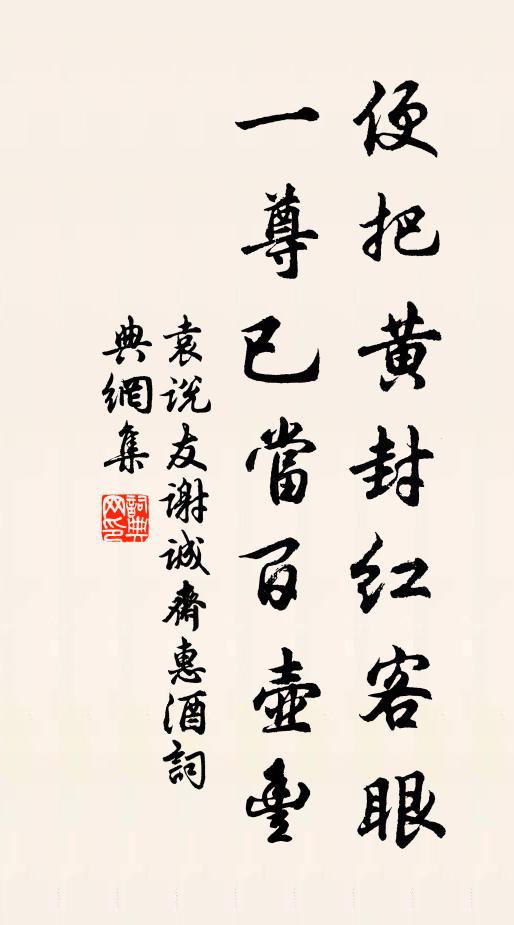 便把黃封紅客眼
一尊已當百壺豐
袁說友謝誠齋惠酒詞
典網集
詞典
网印